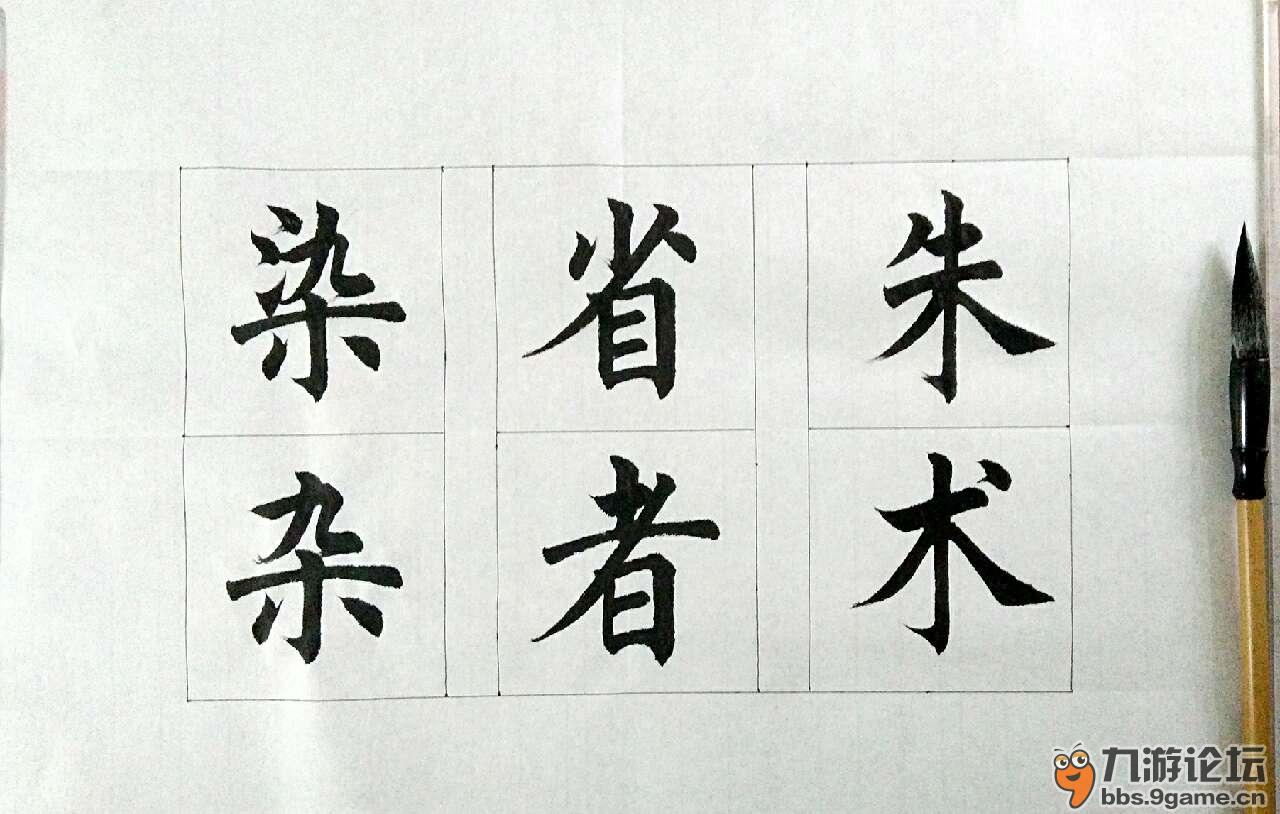 朱术
省者
染杂
九游论坛
bbs.9game.cn